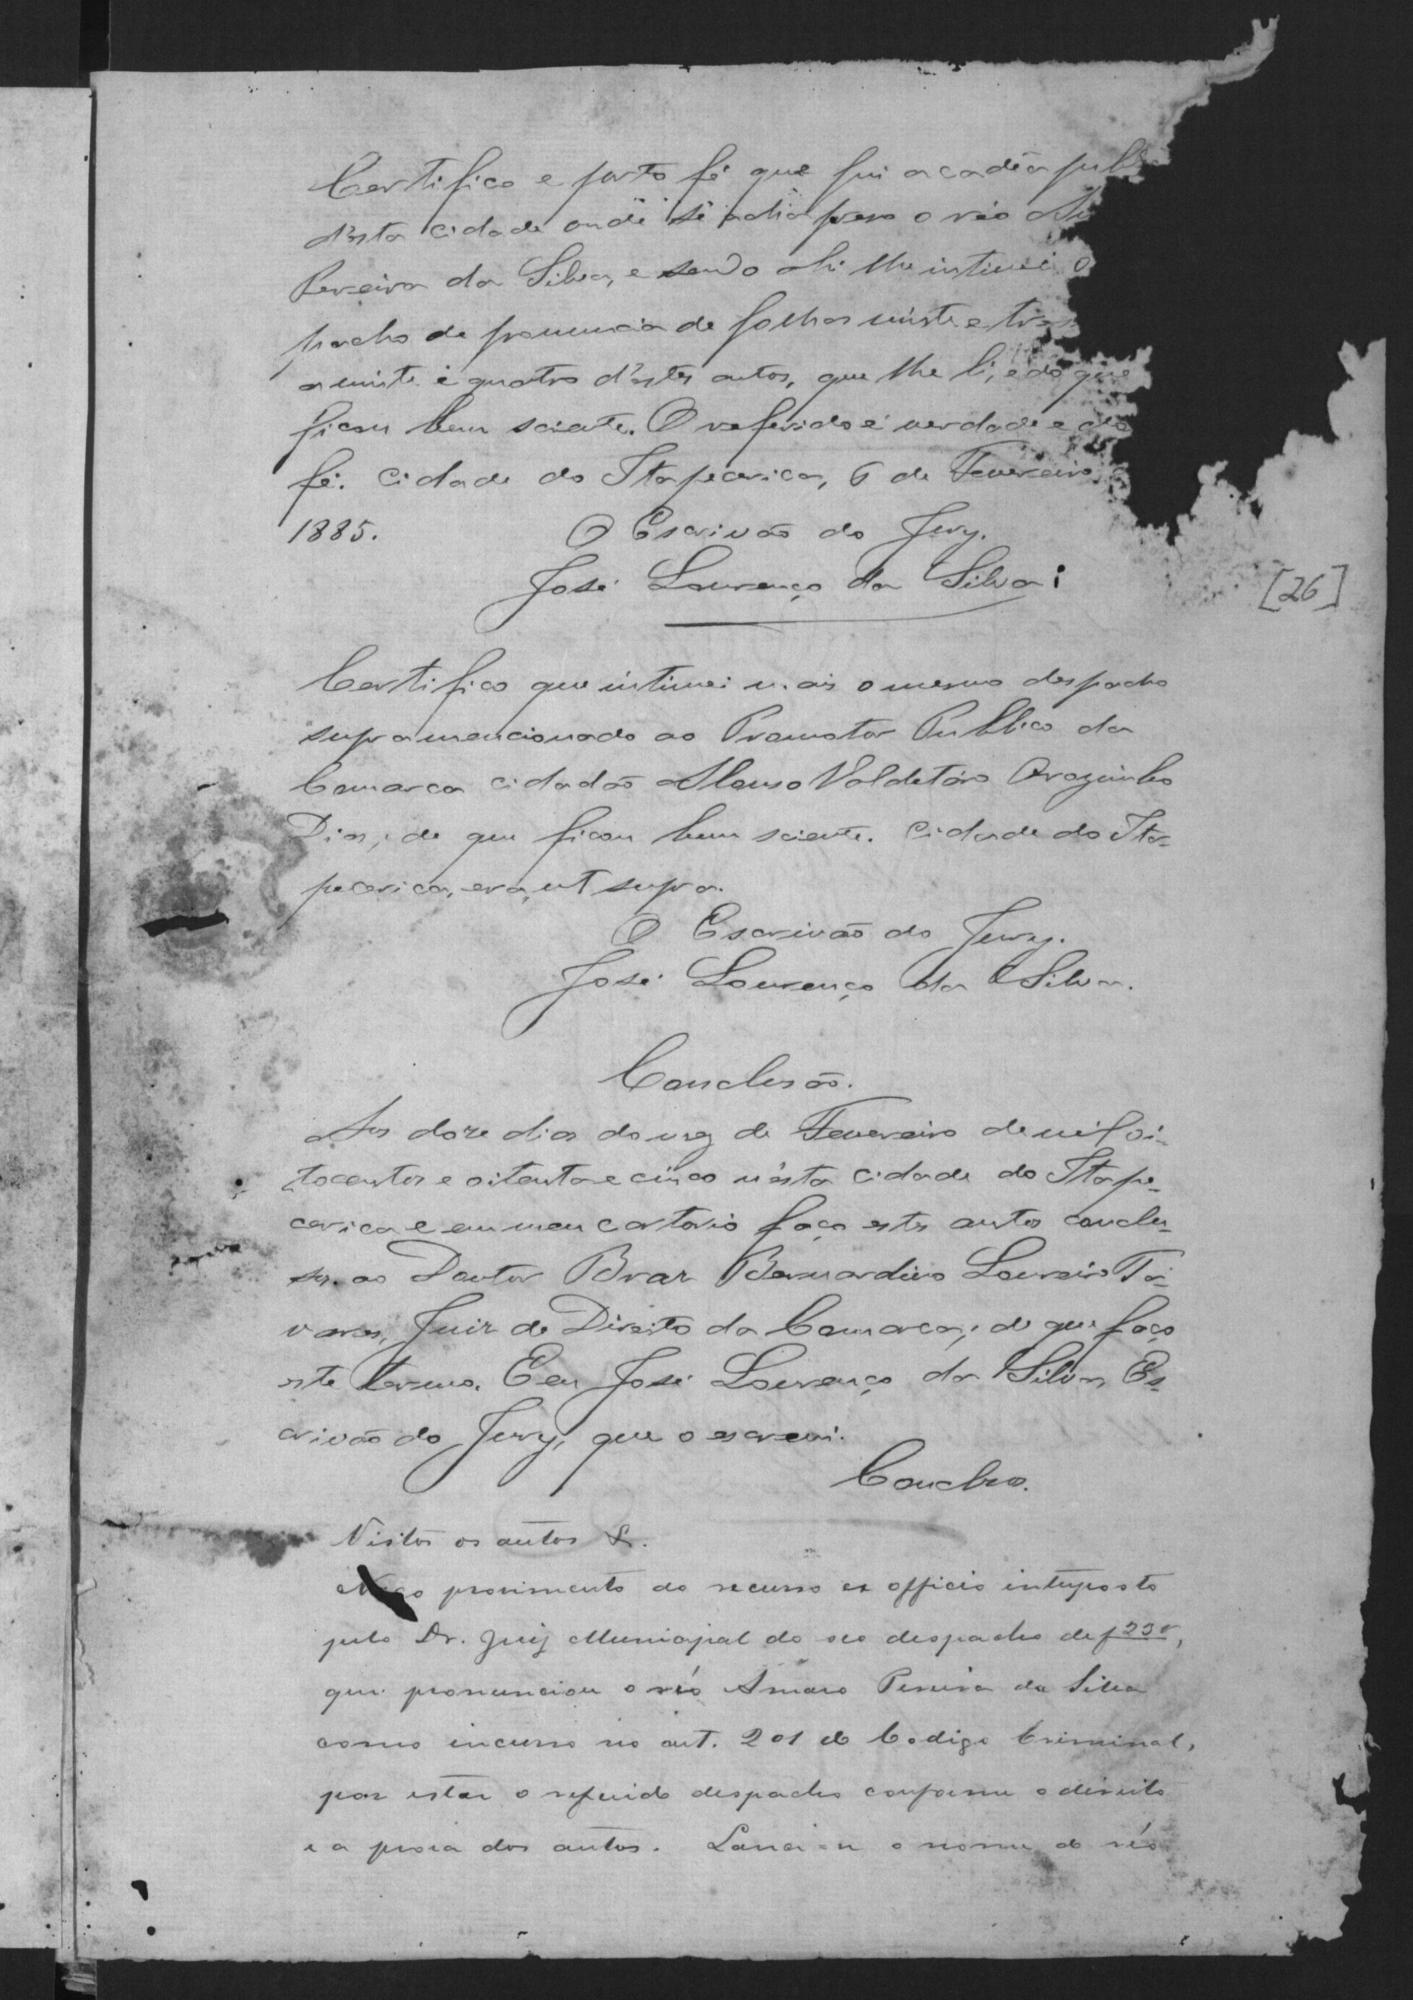 Certifico e porto fé que fui a cadêa publ
d'esta cidade onde se acha preso o réo
Pereira da Silva, e sendo ahi lhe intimei o
pacho de pronuncia de folhas vinte e tres
a vinte e quatro d'estes autos, que lhe li, e do que
ficou bem sciente. O referido é verdade e dou
fé. Cidade do Itapecerica, 6 de Fevereiro
1885. O Escrivão do Jury.
José Lourenço da Silva
[26]
Certifico que intimei mais o mesmo despacho
supramencionado ao Promotor Publico da
Comarca cidadão Valdetáro
Dias, de que ficou bem sciente. Cidade do Ita-
pecerica, era, ut supra.
O Escrivão do Jury.
José Lourenço da Silva.
Conclusão.
Aos doze dias do mez de Fevereiro de mil oi-
tocentos e oitenta e cinco n'esta cidade do Itape-
cerica e em meu cartorio faço estes autos conclu-
sos ao Doutor Braz Bernardino Loureiro Ta-
vares, Juiz de Direito da Comarca; de que faço
este termo. Eeu José Lourenço da Silva, Es-
crivão do Jury, que o escrevi.
Conclso.
Vistos os autos &.
Nego provimento ao recurso ex officio interposto
pelo Dr. Juiz Municipal do seo despacho de f 23v,
que pronunciou o réo Amaro Pereira da Silva
como incurso no art. 201 do Codigo Criminal,
por estar o referido despacho conforme o direito
e a prova dos autos. Lance-se o nome do réo